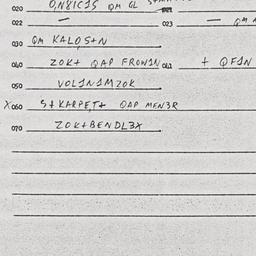 020 0,N8ICIS QM GL
022 — 023 — QM
030 QM KALOS+N
040 ZOK+ QAP FROWIN 041 + QFIN
050 VOLINIMZOK
X060 S+KARPET+ QAP MEN3R
070 ZOK+BENDL3X